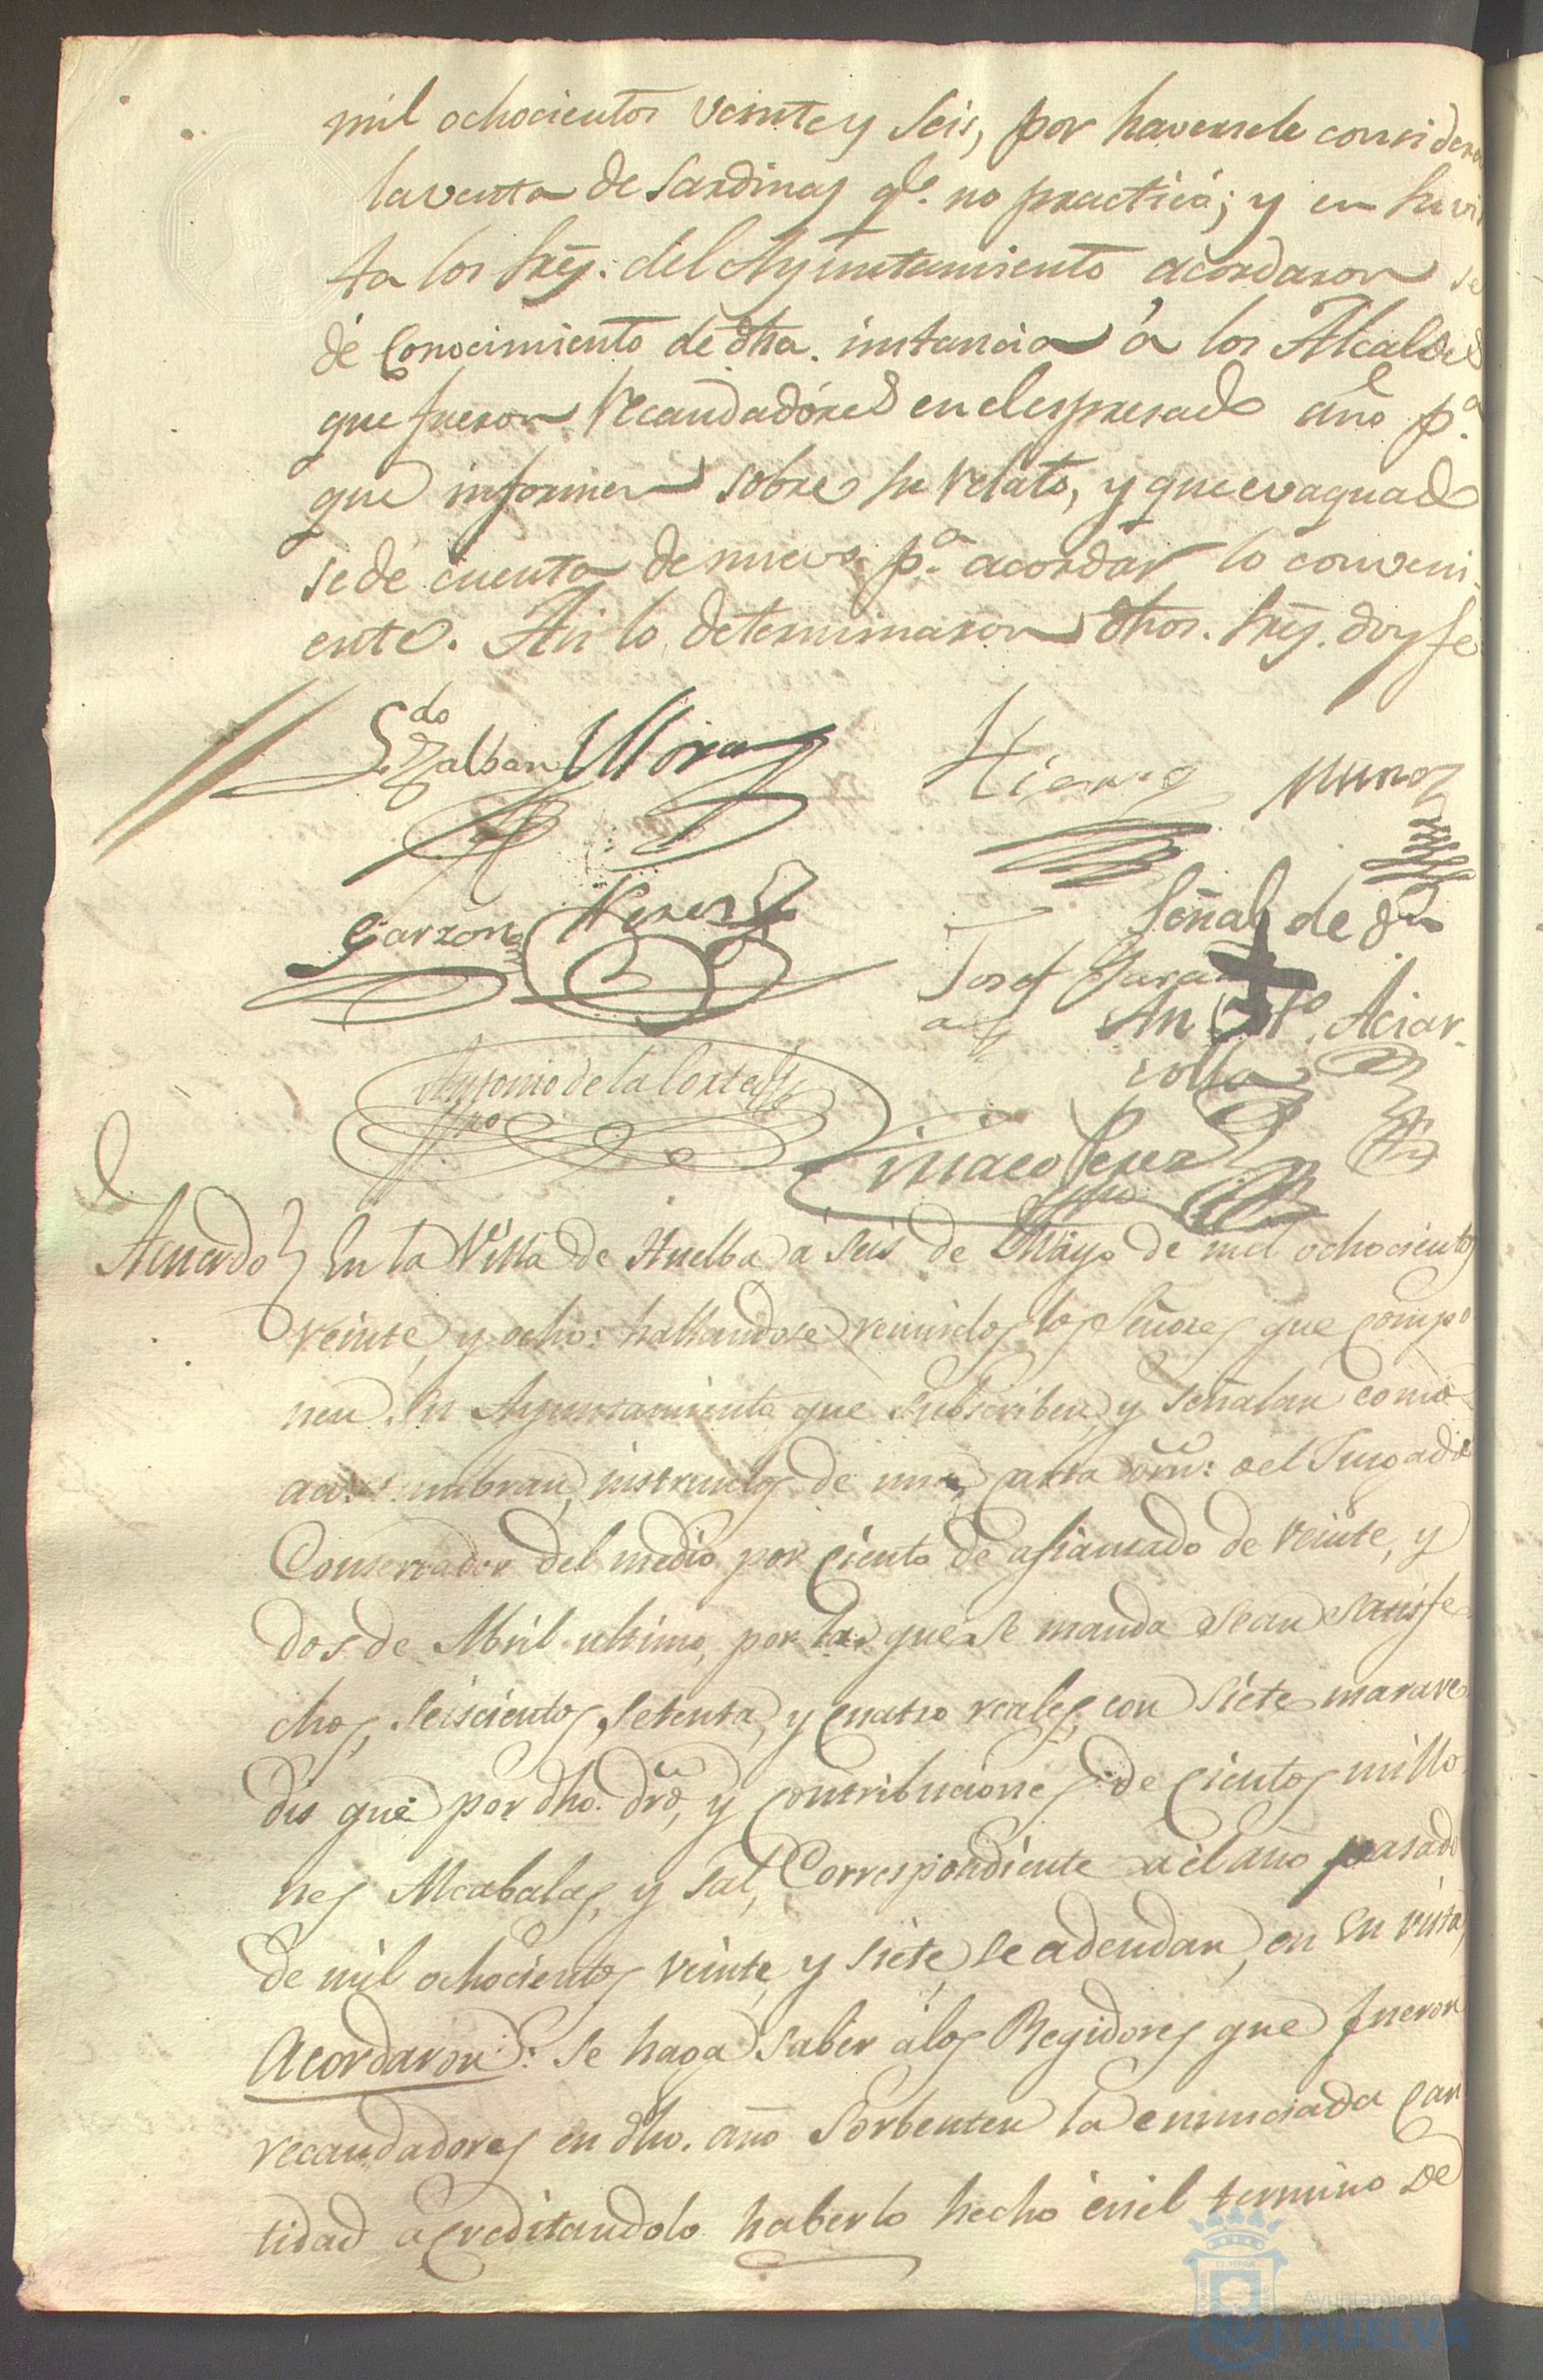 mil ochocientos veinte y seis, por haversele considera
la venta de sardinas qe. no practicó; y en su vis
ta los Sres. del Ayuntamiento acordaron se
dé conocimiento de dha. instancia á los Alcaldes
que fueron recaudadóres en el espresado año pa.
que informen sobre su relato, y que evaquado
se dé cuenta de nuevo pa. acordar lo conveni-
ente. Asi lo determinaron dhos. Sres. doy fe
Ldo. Zalban Mora
Garzon
Señal de
Josef Garcia
Antonio de la Corte
Ciriaco Perez
Acuerdo
En la Villa de Huelba a seis de Mayo de mil ochocientos
veinte, y ocho: hallandose reunidos los Señores que compo
nen su Ayuntamiento que subscriben, y señalan como
acostumbran, instruidos de una carta orn: del Juzgado
Conservador del medio por ciento de afianzado de veinte, y
dos de Abril ultimo, por la que se manda sean satisfe
chos, seiscientos, setenta, y quatro reales, con siete marave
dis que por dho. dro, y contribuciones de cientos millo
nes Alcabalas, y sal, correspondiente a él año pasado
de mil ochocientos veinte, y siete, se adeudan, en su vista,
Acordaron: se haga saber á los Regidores que fueron
recaudadores en dho. año Sorbenten la enunciada can
tidad acreditandolo haberlo hecho en el termino de
Ayuntamiento
HUELVA